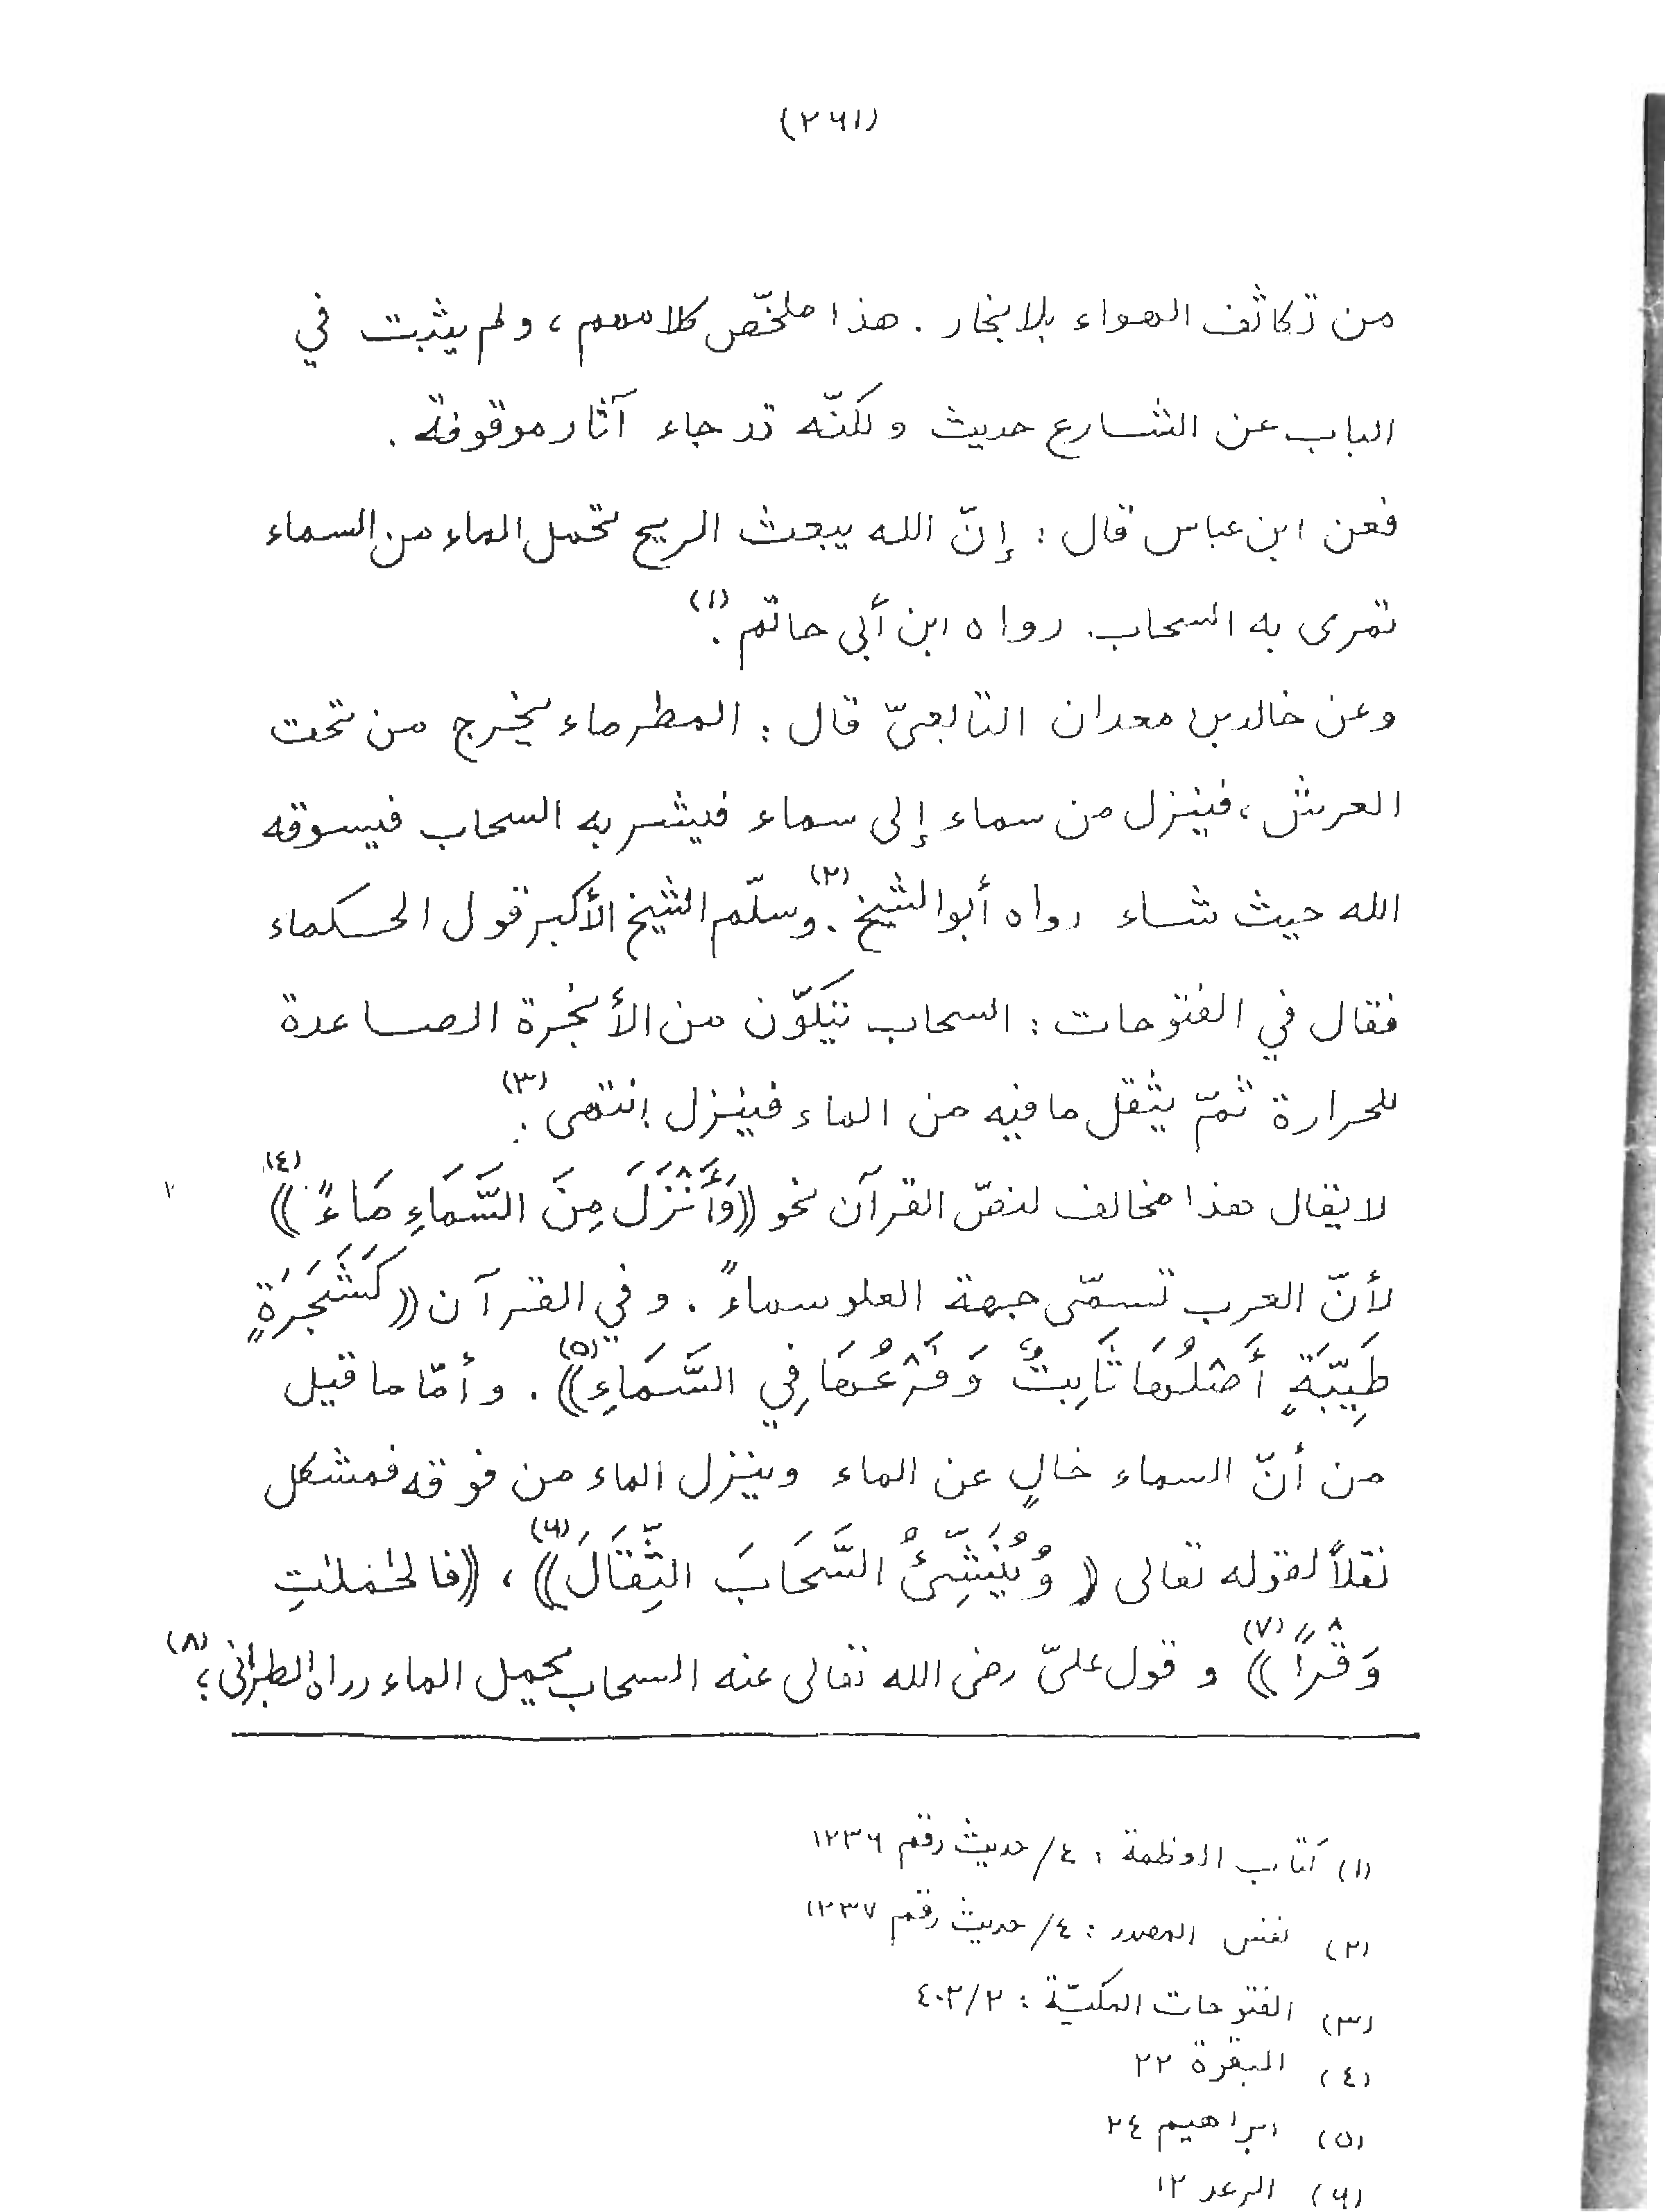 (٢٦١)
من تكاثف الهواء بلا بخار . هذا ملخّص كلامهم ، ولم يثبت في
الباب عن الشارع حديث ولكنّه قد جاء آثار موقوفة .
فعن ابن عباس قال : إنّ الله يبعث الريح تحمل الماء من السماء
تمرى به السحاب. رواه ابن أبي حاتم .(١)
وعن خالد بن معدان التابعيّ قال : المطر ماء يخرج من تحت
العرش ، فينزل من سماء إلى سماء فيشربه السحاب فيسوقه
الله حيث شاء رواه أبو الشيخ .(٢) وسلّم الشيخ الأكبر قول الحكماء
فقال في الفتوحات : السحاب تتكوّن من الأبخرة الصاعدة
للحرارة ثمّ يثقل ما فيه من الماء فينزل انتهى .(٣)
لا يقال هذا مخالف لنصّ القرآن نحو ((وَأَنْزَلَ مِنَ السَّمَاءِ مَاءً))(٤)
لأنّ العرب تسمّى جهة العلو سماءً . وفي القرآن ((كَشَجَرَةٍ
طَيِّبَةٍ أَصْلُهَا ثَابِتٌ وَفَرْعُهَا فِي السَّمَاءِ))(٥) . وأمّا ما قيل
من أنّ السماء خالٍ عن الماء وينزل الماء من فوقه فمشكل
نقلاً لقوله تعالى ((وَيُنْشِئُ السَّحَابَ الثِّقَالَ))(٦) ، ((فالحٰملٰتِ
وَقْرًا))(٧) وقول عليّ رضى الله تعالى عنه السحاب يحمل الماء رواه الطبرانى ؛(٨)
(١) كتاب العظمة : ٤/ حديث رقم ١٢٣٦
(٢) نفس المصدر : ٤/ حديث رقم ١٢٣٧
(٣) الفتوحات المكيّة : ٤٠٢/٢
(٤) البقرة ٢٢
(٥) ابراهيم ٢٤
(٦) الرعد ١٢